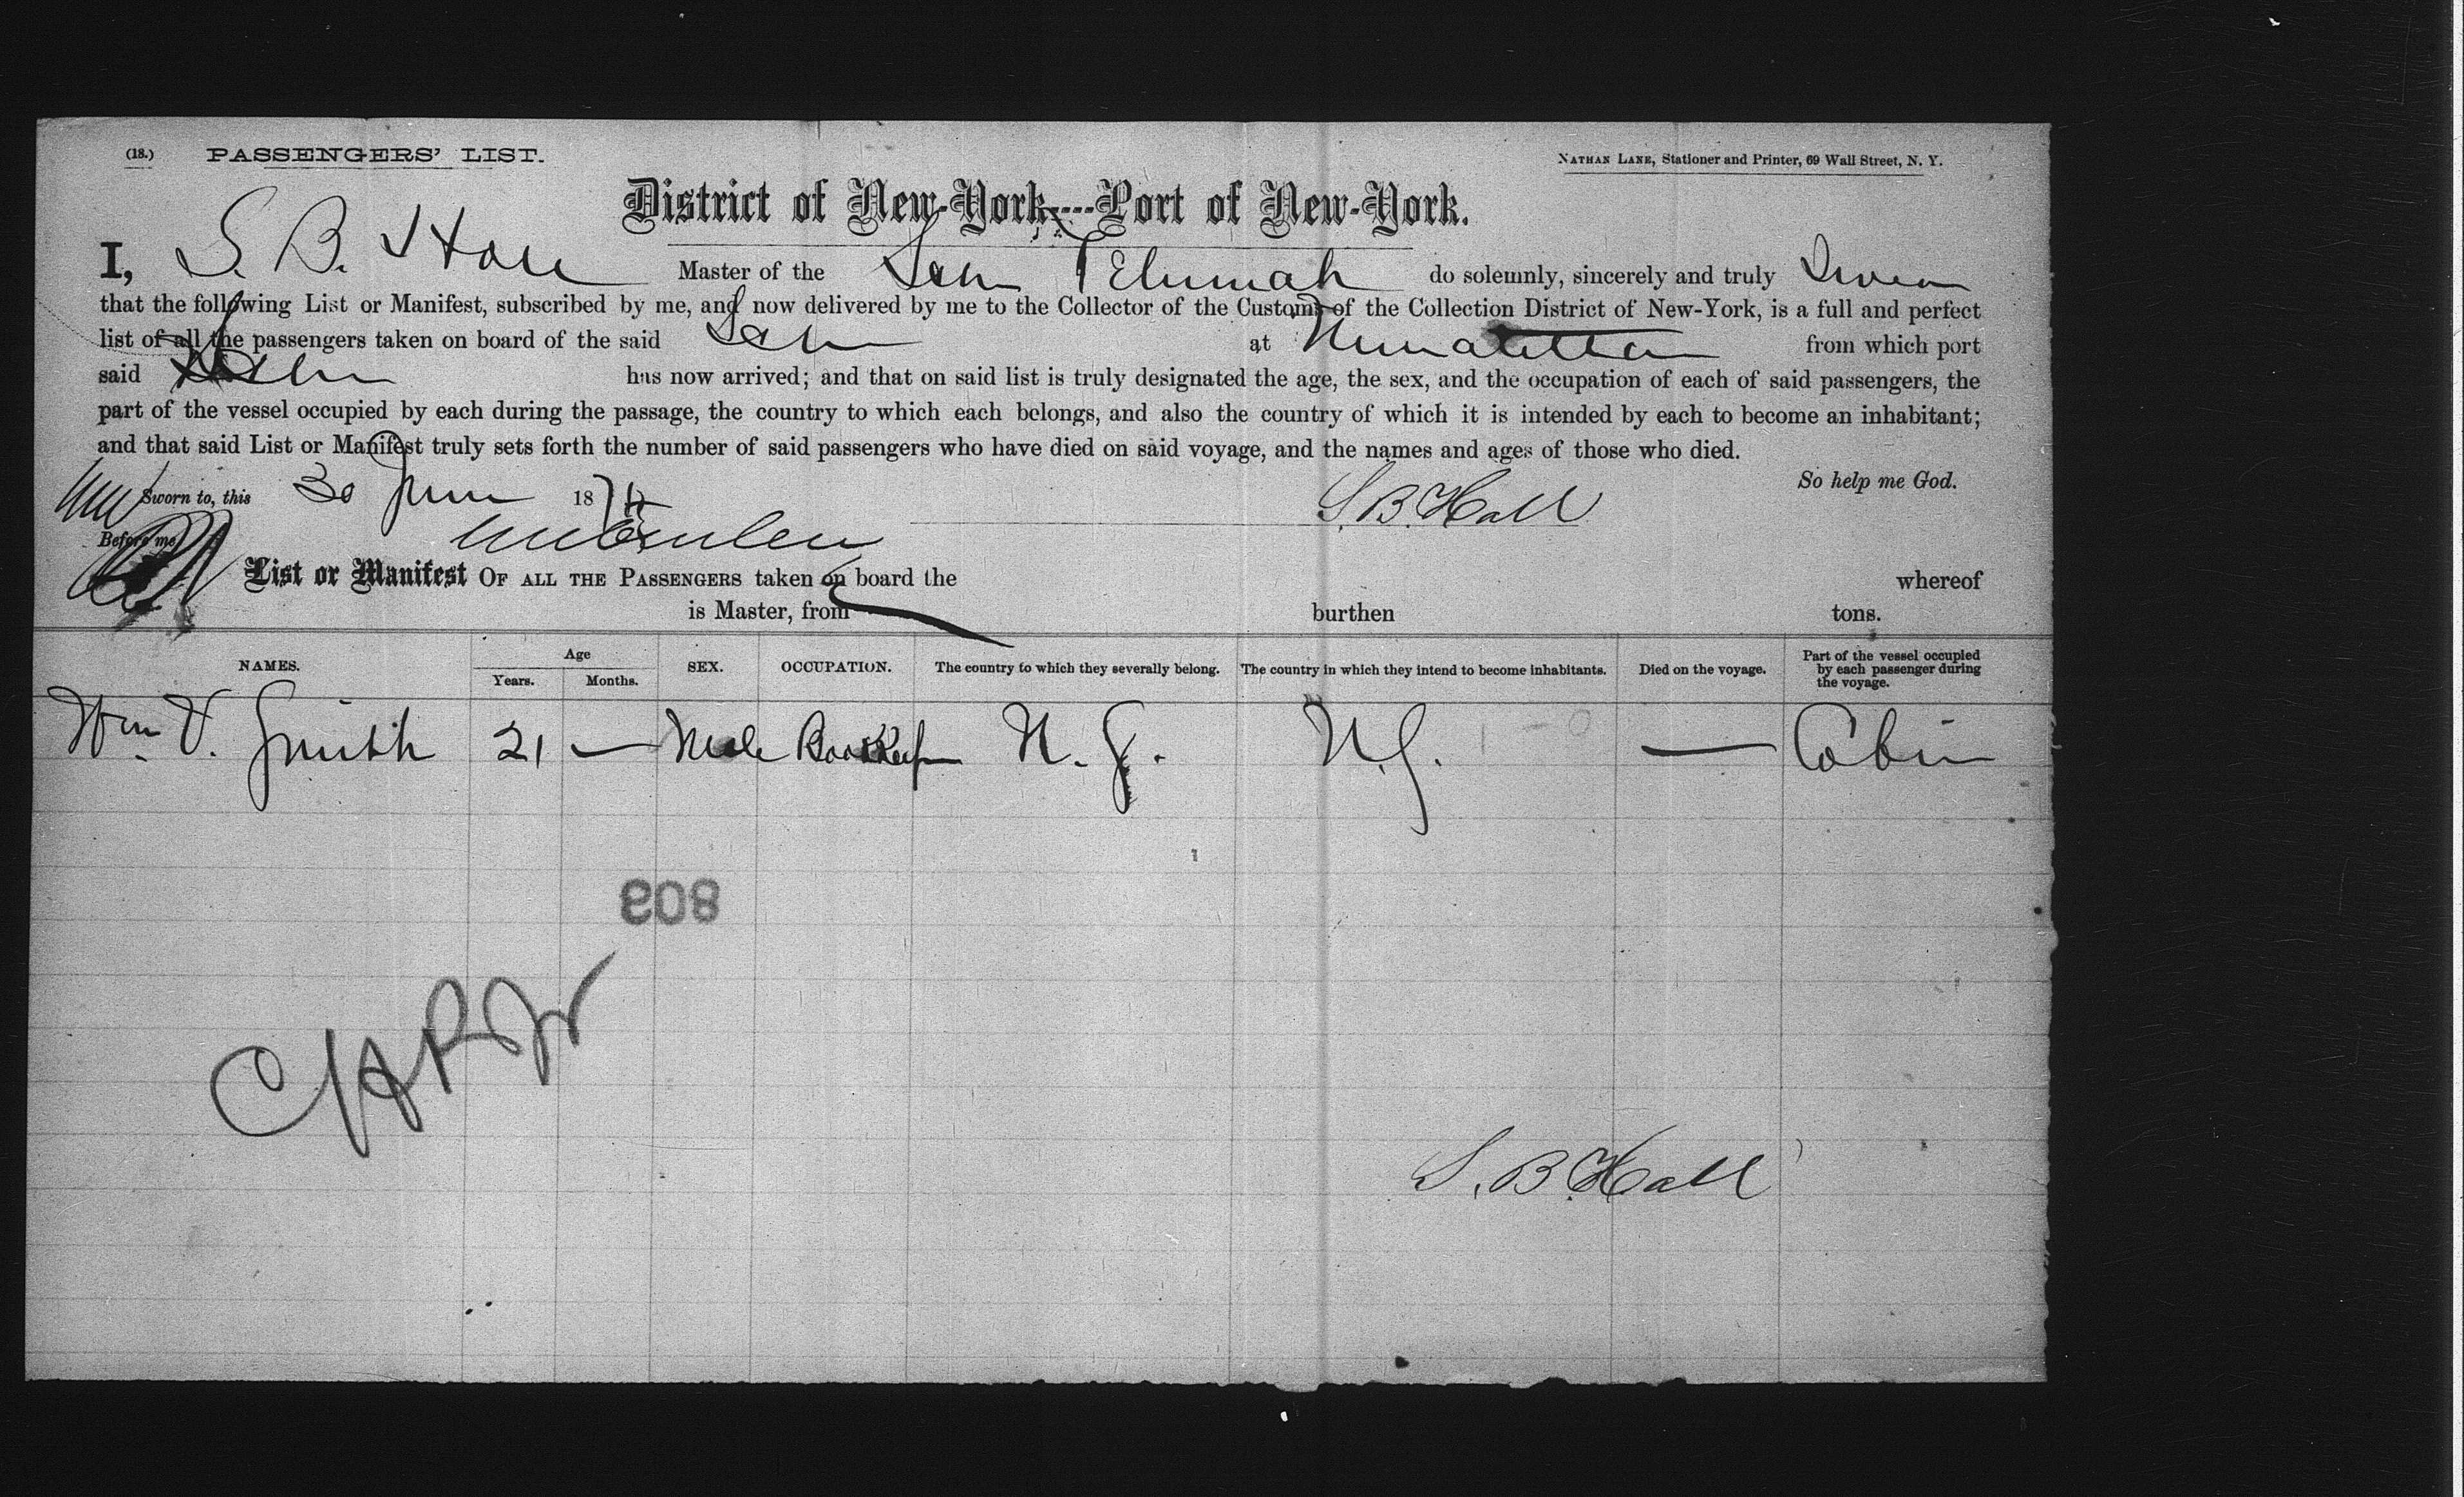 (18.) PASSENGERS' LIST.
NATHAN LANE, Stationer and Printer, 69 Wall Street, N. Y.
District of New-York----Port of New-York.
I, S. B. Hall Master of the Sch do solemnly, sincerely and truly Swear
that the following List or Manifest, subscribed by me, and now delivered by me to the Collector of the Customs of the Collection District of New-York, is a full and perfect
list of all the passengers taken on board of the said Sch at from which port
said Sch has now arrived; and that on said list is truly designated the age, the sex, and the occupation of each of said passengers, the
part of the vessel occupied by each during the passage, the country to which each belongs, and also the country of which it is intended by each to become an inhabitant;
and that said List or Manifest truly sets forth the number of said passengers who have died on said voyage, and the names and ages of those who died.
So help me God.
Sworn to, this 30 June 187
S. B. Hall
Before me
List or Manifest OF ALL THE PASSENGERS taken on board the whereof
is Master, from burthen tons.
NAMES. Age Years. Months. SEX. OCCUPATION. The country to which they severally belong. The country in which they intend to become inhabitants. Died on the voyage. Part of the vessel occupied by each passenger during the voyage.
Wm V. Smith 21 — Male Bookkeeper N. J. N. J. — Cabin
808
S. B. Hall